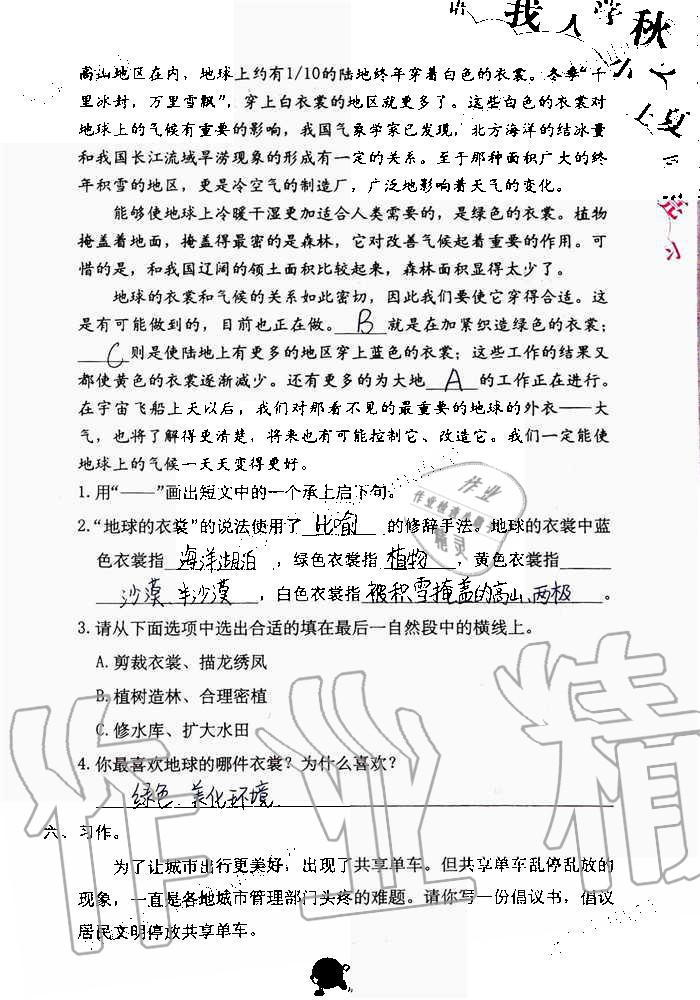 语 我 人 学 秋
上 夏
高山地区在内，地球上约有1/10的陆地终年穿着白色的衣裳。冬季“千
里冰封，万里雪飘”，穿上白衣裳的地区就更多了。这些白色的衣裳对
地球上的气候有重要的影响，我国气象学家已发现，北方海洋的结冰量
和我国长江流域旱涝现象的形成有一定的关系。至于那种面积广大的终
年积雪的地区，更是冷空气的制造厂，广泛地影响着天气的变化。
能够使地球上冷暖干湿更加适合人类需要的，是绿色的衣裳。植物
掩盖着地面，掩盖得最密的是森林，它对改善气候起着重要的作用。可
惜的是，和我国辽阔的领土面积比较起来，森林面积显得太少了。
地球的衣裳和气候的关系如此密切，因此我们要使它穿得合适。这
是有可能做到的，目前也正在做。 B 就是在加紧织造绿色的衣裳；
C 则是使陆地上有更多的地区穿上蓝色的衣裳；这些工作的结果又
都使黄色的衣裳逐渐减少。还有更多的为大地 A 的工作正在进行。
在宇宙飞船上天以后，我们对那看不见的最重要的地球的外衣——大
气，也将了解得更清楚，将来也有可能控制它、改造它。我们一定能使
地球上的气候一天天变得更好。
1. 用“——”画出短文中的一个承上启下句。
2. “地球的衣裳”的说法使用了 比喻 的修辞手法。地球的衣裳中蓝
色衣裳指 海洋湖泊 ，绿色衣裳指 植物 ，黄色衣裳指
沙漠、半沙漠 ，白色衣裳指 被积雪掩盖的高山、两极 。
3. 请从下面选项中选出合适的填在最后一自然段中的横线上。
A. 剪裁衣裳、描龙绣凤
B. 植树造林、合理密植
C. 修水库、扩大水田
4. 你最喜欢地球的哪件衣裳？为什么喜欢？
绿色.美化环境.
六、习作。
为了让城市出行更美好，出现了共享单车。但共享单车乱停乱放的
现象，一直是各地城市管理部门头疼的难题。请你写一份倡议书，倡议
居民文明停放共享单车。
作业精